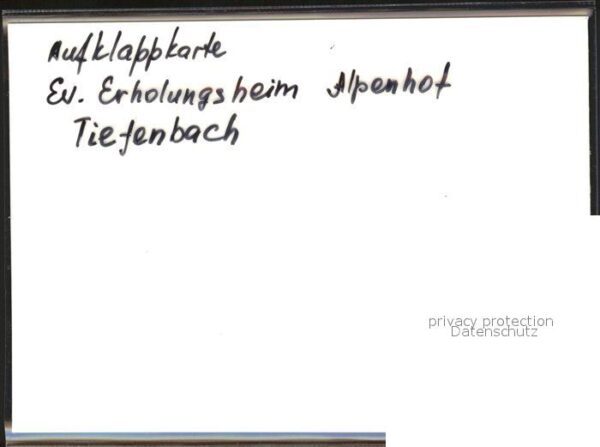 Aufklappkarte
Ev. Erholungsheim Alpenhof
Tiefenbach
privacy protection
Datenschutz